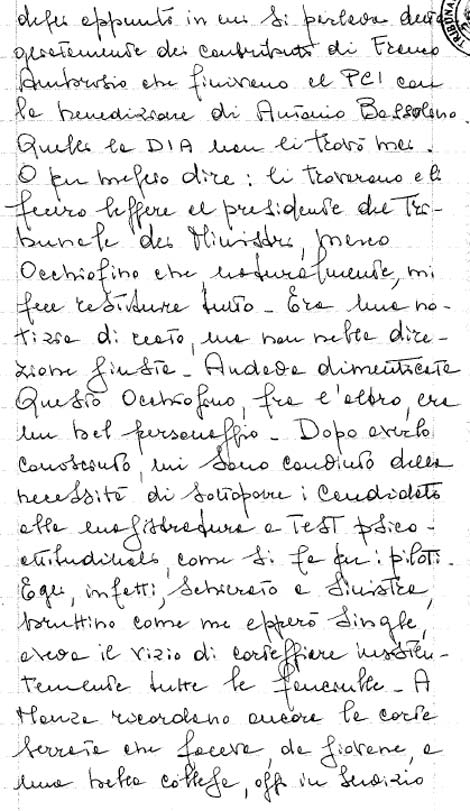 degli appunti in cui si parlava detta
gliatamente dei contributi di Franco
Ambrosio che finivano al PCI con
la benedizione di Antonio Bassolino.
Quelli la DIA non li trovò mai.
O per meglio dire: li trovarono e li
fecero leggere al presidente del Tri-
bunale dei Ministri, Mario
Occhiofino che, naturalmente, mi
fece restituire tutto - Era una no-
tizia di reato, ma non nella dire-
zione giusta - Andava dimenticata
Questo Occhiofino, fra l'altro, era
un bel personaggio - Dopo averlo
conosciuto, mi sono convinto della
necessità di sottoporre i candidati
alla magistratura a test psico-
attitudinali, come si fa per i piloti.
Egli, infatti, schierato a sinistra,
bruttino come me epperò single,
aveva il vizio di corteggiare insisten-
temente tutte le fanciulle - A
Monza ricordano ancora la corte
serrata che faceva, da giovane, a
una bella collega, oggi in servizio
TRIBUNAL